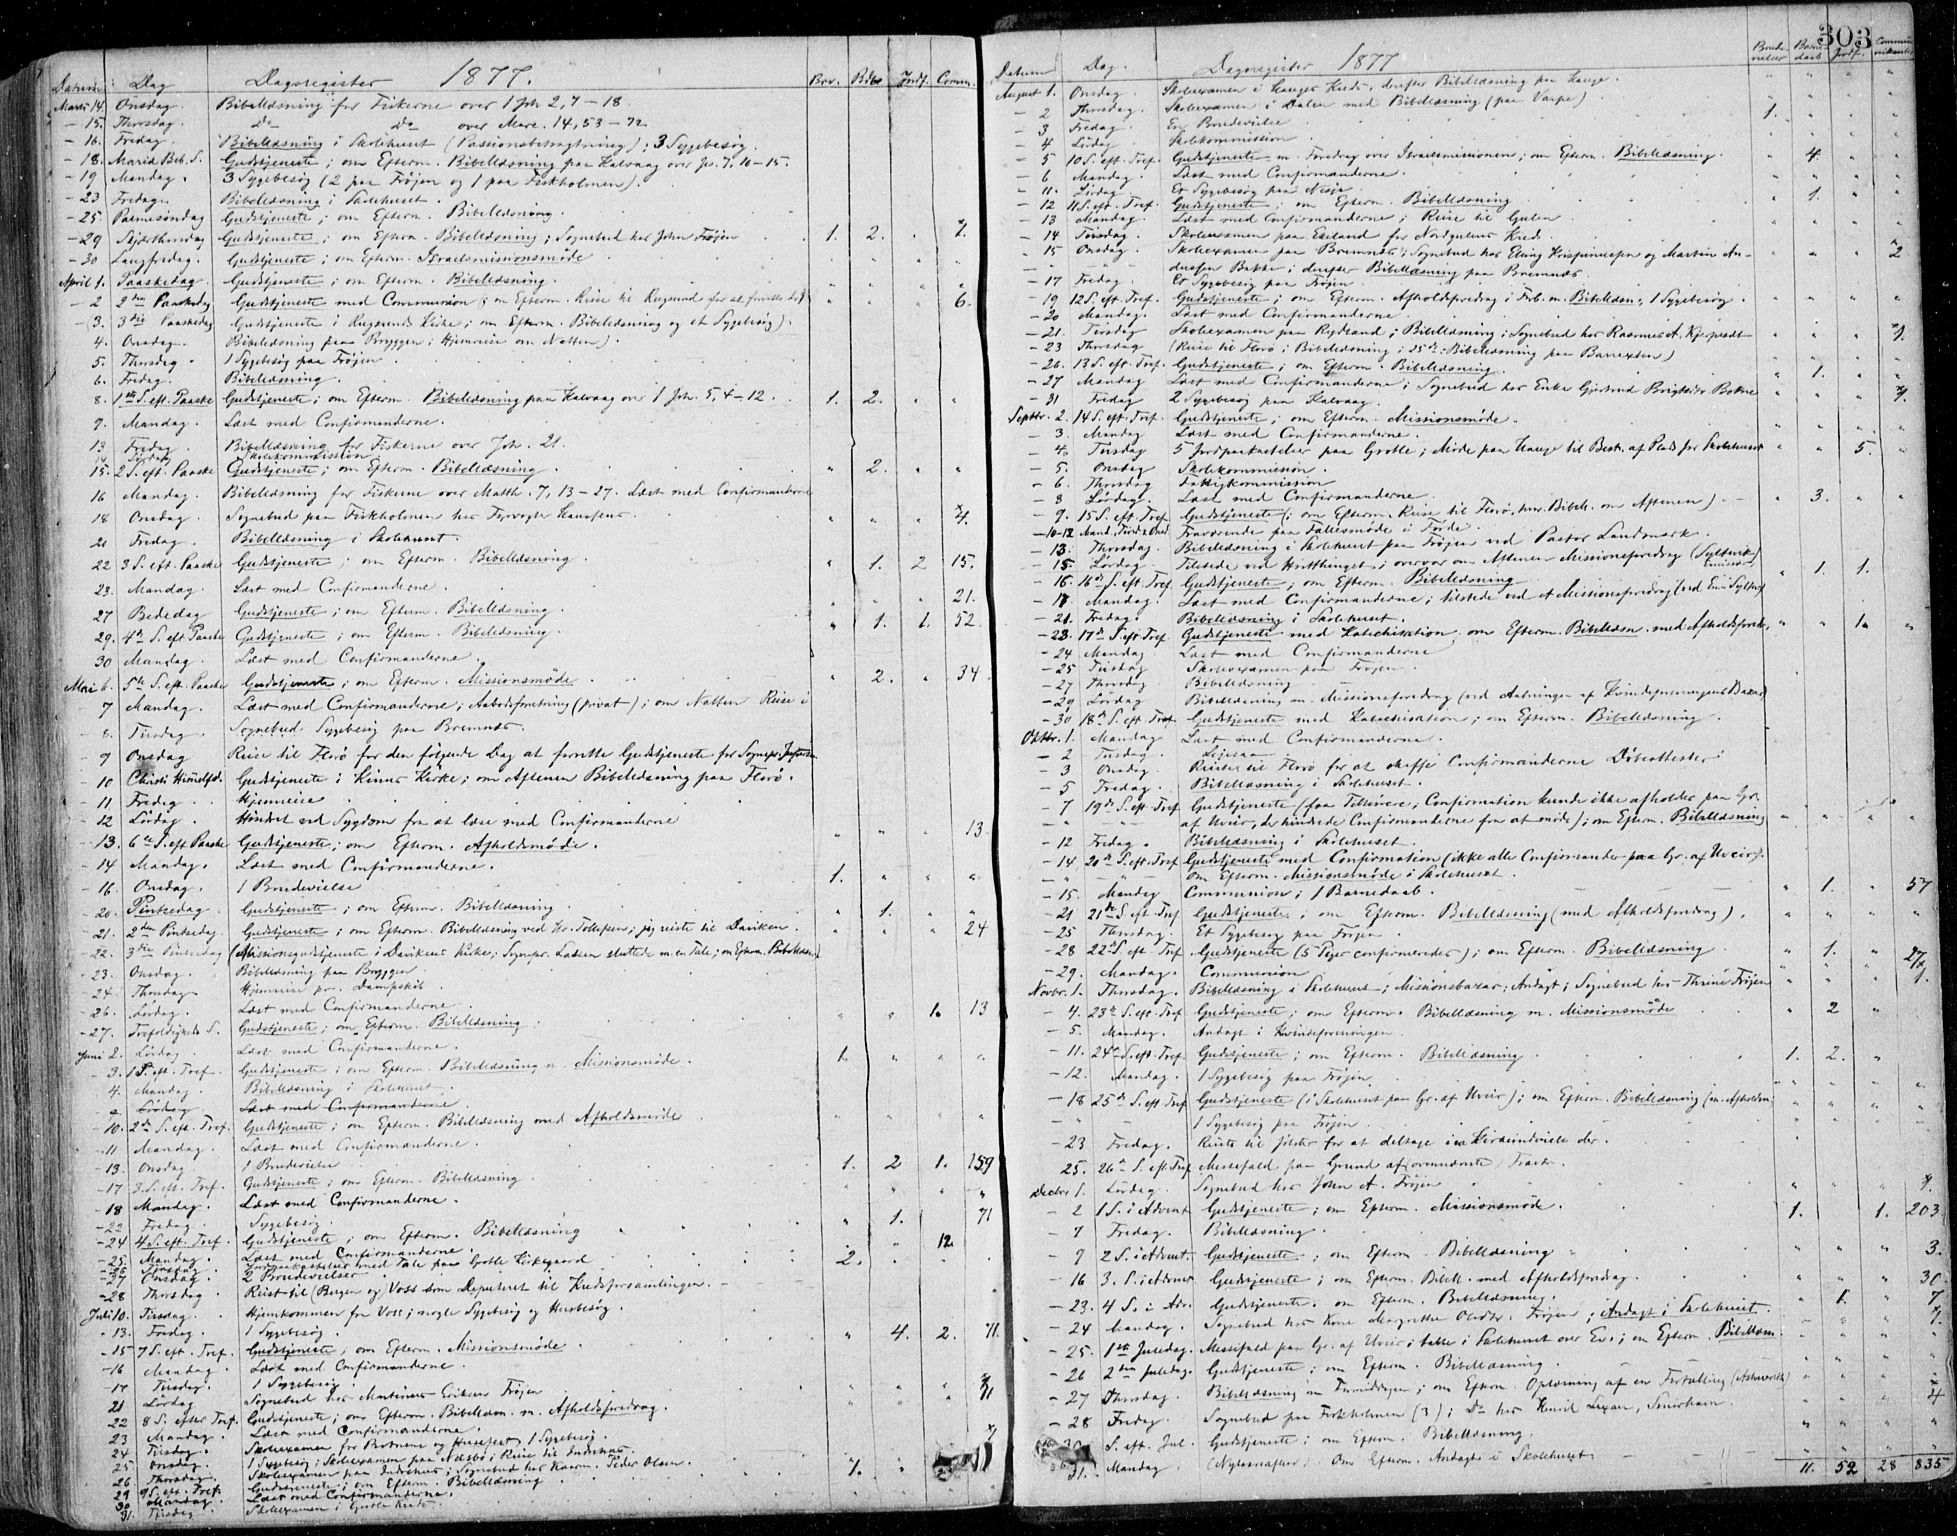 Datum Dag Dagsregister 1877. Brv. Bdb. Jndf. Comm.
Marts 14. Onsdag. Bibellæsning for Fiskerne over 1 Joh 2, 7-18
- 15. Thorsdag. Do Do over Marc. 14, 53-72
- 16. Fredag. Bibellæsning i Skolehuset (Passionsbetragtning); 3 Sygebesög.
- 18. Mariæ Beb. S. Gudstjeneste; om Efterm. Bibellæsning paa Kalvaag over Jo. 7, 10-15.
- 19 Mandag. 3 Sygebesög (2 paa Fröjen og 1 paa Fiskholmen).
- 23 Fredag. Bibellæsning i Skolehuset.
- 25. Palmesöndag Gudstjeneste; om Efterm. Bibellæsning.
- 29 Skjærthorsdag Gudstjeneste; om Efterm. Bibellæsning; Sognebud hos John Fröjen 1. 2. 1.
- 30 Langfredag. Gudstjeneste; om Efterm. Israelsmissionsmøde
April 1. Paaskedag. Gudstjeneste; om Efterm. Bibellæsning.
- 2 2den Paaskedag Gudstjeneste med Communion (om Efterm. Reise til Rugsund for at forrette der) 6.
- 3. 3die Paaskedag Gudstjeneste i Rugsunds Kirke; om Efterm. Bibellæsning og et Sygebesög).
4. Onsdag. Bibellæsning paa Bryggen; Hjemreise om Natten).
5. Thorsdag. 1 Sygebesög paa Fröjen.
6. Fredag. Bibellæsning.
8. 1ste S. eft. Paaske Gudstjeneste; om Efterm. Bibellæsning paa Kalvaag over 1 Joh. 5, 4-12. 1. 2.
9. Mandag. Læst med Confirmanderne.
13 Fredag. Bibellæsning for Fiskerne over Joh. 21.
14 Lördag Skolekommission
15. 2 S. eft. Paaske Gudstjeneste; om Efterm. Bibellæsning. 2.
16 Mandag. Bibellæsning for Fiskerne over Matth. 7, 13-27. Læst med Confirmanderne
18 Onsdag. Sognebud paa Fiskholmen hos Fyrvogter Hansens. 4.
21 Fredag. Bibellæsning i Skolehuset.
22 3 S. eft. Paaske Gudstjeneste; om Efterm. Bibellæsning. 1. 2 15.
23. Mandag. Læst med Confirmanderne.
27 Bededag Gudstjeneste; om Efterm. Bibellæsning. 21.
29. 4de S. eft Paaske Gudstjeneste; om Efterm. Bibellæsning. 1. 1. 52
30 Mandag. Læst med Confirmanderne.
Mai 6. 5te S. eft. Paaske Gudstjeneste; om Efterm. Missionsmøde. 2. 34.
- 7 Mandag. Læst med Confirmanderne; Aabodsforretning (privat); om Natten Reise i
- 8. Tirsdag Sognebud Sygebesög paa Bremnæs.
- 9 Onsdag Reise til Florö for den følgende Dag at forrette Gudstjeneste for Sognepr.
- 10 Christi Himelfd. Gudstjeneste i Kinns Kirke; om Aftenen Bibellæsning paa Florö.
- 11 Fredag. Hjemreise
- 12 Lördag. Hindret ved Sygdom fra at læse med Confirmanderne
- 13. 6te S. eft Paaske Gudstjeneste; om Efterm. Afholdsmøde. 13
- 14 Mandag. Læst med Confirmanderne.
- 16. Onsdag. 1 Brudevielse 1.
- 20. Pintsedag. Gudstjeneste; om Efterm. Bibellæsning. 1.
- 21. 2den Pintsedag. Gudstjeneste; om Efterm. Bibellæsning ved Hr. Tollefsen; jeg reiste til Daviken. 24
- 22. 3die Pintsedag (Missionsgudstjeneste i Davikens Kirke; Sognepr. Lassen sluttede m. en Tale; om Efterm. Bibellæsn.)
- 23. Onsdag. Bibellæsning paa Bryggen
- 24. Thorsdag Hjemreise pr. Dampskib.
- 26. Lördag. Læst med Confirmanderne.
- 27. Trefoldigheds S. Gudstjeneste; om Efterm. Bibellæsning. 1. 13
Juni 2. Lördag Læst med Confirmanderne.
- 3. 1 S. eft. Tref. Gudstjeneste; om Efterm. Bibellæsning m. Missionsmøde. 1.
4. Mandag. Bibellæsning i Skolehuset.
9 Lördag Læst med Confirmanderne
- 10. 2de S. eft. Tref. Gudstjeneste; om Efterm. Bibellæsning med Afholdsmøde
- 11 Mandag. Læst med Confirmanderne.
- 13. Onsdag 1 Brudevielse 1. 2 1. 159
- 17 3 S. eft. Tref. Gudstjeneste; om Efterm. Bibellæsning.
- 18 Mandag. Læst med Confirmanderne.
- 22 Fredag. Sygebesög. 1. 71
- 24 4 S. eft. Tref. Gudstjeneste; om Efterm. Bibellæsning 12.
- 25. Mandag. Læst med Confirmanderne.
- 26 Tirsdag. Jordpaakastelse med Tale paa Grotle Kirkegaard
- 27 Onsdag. 2 Brudevielser 2.
- 28 Thorsdag Reist til (Bergen og) Voss som Deputeret til Kredsforsamlingen.
Juli 10. Tirsdag. Hjemkommen fra Voss; nogle Sygebesög og Husbesög.
- 13. Fredag. 1 Sygebesög. 4. 2. 11.
- 15 7 S. eft. Tref. Gudstjeneste; om Efterm. Missionsmøde.
- 16 Mandag. Læst med Confirmanderne.
- 17 Tirsdag. 1 Sygebesög.
21 Lördag Sognebud hos Martinus Eriksen Fröjen
22 8 S. efter Tref. Gudstjeneste; om Efterm. Bibellæsn. m. Afholdsforedrag.
23 Mandag. Læst med Confirmanderne.
24 Tirsdag. Skoleexamen for Botnene og Husefest, 1 Sygebesög.
25 Onsdag. 1 Sygebesög; Skoleexamen paa Næsbö; Reise til Indrehus.
26 Thorsdag. Skoleexamen paa Indrehus; Sognebud hos Kaarm. Peder Olsen. 1.
29 9 S. eft. Tref. Gudstjeneste; om Efterm. Bibellæsning.
30 Mandag. Læst med Confirmanderne.
31. Tirsdag. Skoleexamen i Grotle Kreds.
303
Datum Dag. Dagsregister 1877 Brudevielser Barnedaab Jordf. Communikanter
August 1. Onsdag. Skoleexamen i Hauges Kreds, derefter Bibellæsning paa Hauge.
- 2 Thorsdag. Skoleexamen i Dalen med Bibellæsning (paa Varpe).
- 3 Fredag. En Brudevielse 1.
- 4 Lördag Skolekommission
- 5 10 S. eft. Tref. Gudstjeneste m. Foredrag over Israelsmissionen; om Efterm. Bibellæsning. 4.
- 6 Mandag. Læst med Confirmanderne.
- 11. Lördag. Et Sygebesög paa Nesja.
- 12 11 S. eft. Tref. Gudstjeneste; om Efterm. Bibellæsning 1.
- 13 Mandag. Læst med Confirmanderne; Reise til Gulen
- 14 Tirsdag. Skoleexamen paa Ekeland for Nordgulens Kreds.
- 15 Onsdag. Skoleexamen paa Bremnæs; Sognebud hos Eling Krispinuspn og Martin An- 2
dersen Bakke; derefter Bibellæsning paa Bremnæs.
- 17 Fredag. Et Sygebesög paa Fröjen
- 19 12 S. eft. Tref. Gudstjeneste; om Efterm. Afholdsforedrag i Forb. m. Bibellæsn.; 1 Sygebesög.
- 20 Mandag. Læst med Confirmanderne.
- 21. Tirsdag Skoleexamen paa Rydland; Bibellæsning; Sognebud hos Rasmus A. 1.
- 23 Thorsdag (Reise til Florö; Bibellæsning; 25de Bibellæsning paa Barexten)
- 26. 13 S. eft. Tref. Gudstjeneste; om Efterm. Bibellæsning. 1.
- 27 Mandag Læst med Confirmanderne; Sognebud hos Enke Gjertrud 4.
- 31 Fredag 2 Sygebesög paa Kalvaag.
Septbr. 2. 14 S. eft. Tref. Gudstjeneste; om Efterm. Missionsmøde.
- 3. Mandag Læst med Confirmanderne.
- 4. Tirsdag 5 Jordpaakastelser paa Grotle; Møde paa Hauge til Best. af Plads for Skolehuset 5.
- 5. Onsdag Skolekommission.
- 6. Thorsdag Fattigkommission
- 8 Lördag. Læst med Confirmanderne. 3.
- 9. 15 S. eft. Tref. Gudstjeneste (om Efterm. Reise til Florö, hvor Bibell. om Aftenen).
- 10-12 Mand., Tirsd. & Onsd. Fraværende paa Fællesmøde i Førde.
- 13. Thorsdag. Bibellæsning i Skolehuset paa Fröjen ved Pastor Landmark.
- 15. Lördag. Tilstede ved Høstthinget; overvar om Aftenen Missionsforedrag (Syltevik)
- 16. 16de S. eft. Tref. Gudstjeneste; om Efterm. Bibellæsning 1. 1.
- 17. Mandag. Læst med Confirmanderne; tilstede ved et Missionsforedrag (ved Em. Syltevik)
- 21. Fredag. Bibellæsning i Skolehuset.
- 23. 17de S. eft Tref. Gudstjeneste med Katechisation; om Efterm. Bibellæsn. med Afholdsforedr. 1.
- 24 Mandag Læst med Confirmanderne
- 25 Tirsdag Skoleexamen paa Fröjen.
- 27 Thorsdag Bibellæsning
- 29 Lördag Bibellæsning m. Missionsforedrag (ved Aabningen af Kvindeforeningens Bazar)
- 30 18de S. eft. Tref. Gudstjeneste med Katechisation; om Efterm. Bibellæsning.
Oktbr. 1. Mandag Læst med Confirmanderne.
- 2 Tirsdag. Ligesaa
- 3 Onsdag. Reiste til Florö for at skaffe Confirmanderne Döbeattester
- 5 Fredag. Bibellæsning i Skolehuset.
- 7 19de S. eft. Tref Gudstjeneste (faa Tilhörere; Confirmation kunde ikke afholdes paa Gr.
af Uveir, der hindrede Confirmanderne fra at møde); om Efterm. Bibellæsning
- 12 Fredag. Bibellæsning i Skolehuset.
- 14 20de S. eft. Tref Gudstjeneste med Confirmation (ikke alle Confirmander paa Gr. af Uveir).
om Efterm. Missionsmøde i Skolehuset.
- 15. Mandag Communion; 1 Barnedaab. 1. 57
- 21 21de S. eft. Tref. Gudstjeneste; om Efterm. Bibellæsning (med Afholdsforedrag).
- 25 Thorsdag. Et Sygebesög paa Fröjen.
- 28 22de S. eft. Tref. Gudstjeneste (5 Piger confirmerede); om Efterm. Bibellæsning 1. 27
- 29. Mandag. Communion
Novbr. 1. Thorsdag. Bibellæsning i Skolehuset; Missionsbazar; Andagt; Sognebud hos Thrine Fröjen 1.
- 4. 23de S. eft. Tref. Gudstjeneste; om Efterm. Bibellæsning m. Missionsmøde 2
- 5. Mandag. Andagt i Kvindeforeningen.
- 11. 24de S. eft. Tref. Gudstjeneste; om Efterm. Bibellæsning 1. 2.
- 12. Mandag. 1 Sygebesög paa Fröjen
- 18 25de S. eft Tref Gudstjeneste (i Skolehuset paa Gr. af Uveir); om Efterm. Bibellæsning (m. Afholdsm.
1 Sygebesög paa Fröjen.
- 23 Fredag. Reiste til Jölster for at deltage i en Kirkeindvielse der.
25. 26de S. eft. Tref Messefald paa Grund af ovennævnte Fravær.
Decbr. 1. Lördag. Sognebud hos John A. Fröjen 1.
- 2 1 S. i Advent Gudstjeneste; om Efterm. Missionsmøde. 1. 1. 203
- 7 Fredag. Bibellæsning.
- 9 2 S. i Advent. Gudstjeneste; om Efterm. Bibellæsning 3.
- 16 3. S. i Advent Gudstjeneste; om Efterm. Bibell. med Afholdsforedrag. 30
- 23. 4 S. i Adv. Gudstjeneste. om Efterm. Bibellæsning. 1. 7
- 24 Mandag. Sognebud hos Kone Magrethe Olsdtr. Fröjen; Andagt i Skolehuset. 1.
- 25. 1ste Juledag. Messefald paa Gr. af Uveir; talte i Skolehuset over Ev.; om Efterm. Bibellæsn.
- 26 2den Juledag. Gudstjeneste; om Efterm. Bibellæsning.
- 27 Thorsdag. Bibellæsning om Formiddagen; om Efterm. Oplæsning af en Fortælling
- 28 Fredag. Sognebud paa Fiskholmen (3); Do hos Henrik Lexau, Smörhavn. 4
30. S. eft. Jul. Gudstjeneste; om Efterm. Bibellæsning.
31. Mandag (Nytaarsaften) Om Efterm. Andagt i Skolehuset.
11. 52 28 835